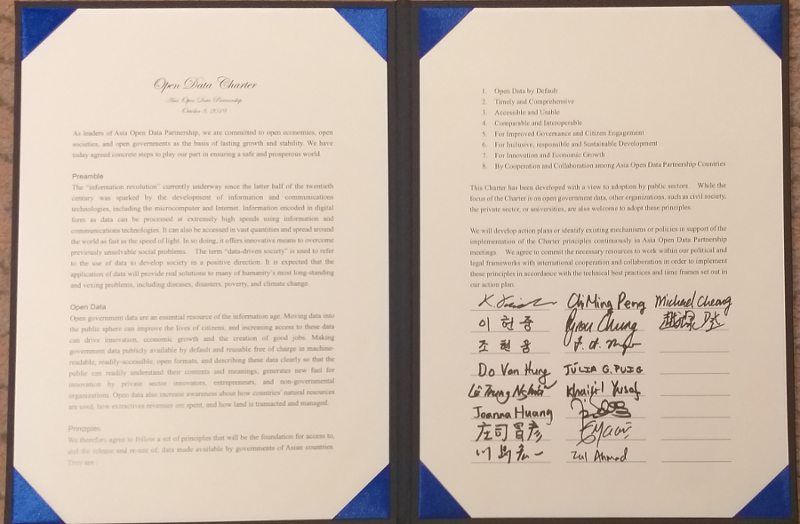 Open Data Charter
Asia Open Data Partnership
October 8, 2019
As leaders of Asia Open Data Partnership, we are committed to open economies, open
societies, and open governments as the basis of lasting growth and stability. We have
today agreed concrete steps to play our part in ensuring a safe and prosperous world.
Preamble
The “information revolution” currently underway since the latter half of the twentieth
century was sparked by the development of information and communications
technologies, including the microcomputer and Internet. Information encoded in digital
form as data can be processed at extremely high speeds using information and
communications technologies. It can also be accessed in vast quantities and spread around
the world as fast as the speed of light. In so doing, it offers innovative means to overcome
previously unsolvable social problems. The term “data-driven society” is used to refer
to the use of data to develop society in a positive direction. It is expected that the
application of data will provide real solutions to many of humanity’s most long-standing
and vexing problems, including diseases, disasters, poverty, and climate change.
Open Data
Open government data are an essential resource of the information age. Moving data into
the public sphere can improve the lives of citizens, and increasing access to these data
can drive innovation, economic growth and the creation of good jobs. Making
government data publicly available by default and reusable free of charge in machine-
readable, readily-accessible, open formats, and describing these data clearly so that the
public can readily understand their contents and meanings, generates new fuel for
innovation by private sector innovators, entrepreneurs, and non-governmental
organizations. Open data also increase awareness about how countries' natural resources
are used, how extractives revenues are spent, and how land is transacted and managed.
Principles
We therefore agree to follow a set of principles that will be the foundation for access to,
and the release and re-use of, data made available by governments of Asian countries.
They are:
1. Open Data by Default
2. Timely and Comprehensive
3. Accessible and Usable
4. Comparable and Interoperable
5. For Improved Governance and Citizen Engagement
6. For Inclusive, responsible and Sustainable Development
7. For Innovation and Economic Growth
8. By Cooperation and Collaboration among Asia Open Data Partnership Countries
This Charter has been developed with a view to adoption by public sectors. While the
focus of the Charter is on open government data, other organizations, such as civil society,
the private sector, or universities, are also welcome to adopt these principles.
We will develop action plans or identify existing mechanisms or policies in support of the
implementation of the Charter principles continuously in Asia Open Data Partnership
meetings. We agree to commit the necessary resources to work within our political and
legal frameworks with international cooperation and collaboration in order to implement
these principles in accordance with the technical best practices and time frames set out in
our action plan.
ChiMing Peng Michael Cheang
이헌중 Chung
조현웅
Do Van Hung JÚLIA G. PUIG
Lê Trung Nghĩa Khairil Yusof
Joanna Huang
庄司昌彦
川島宏一 Zul Ahmad